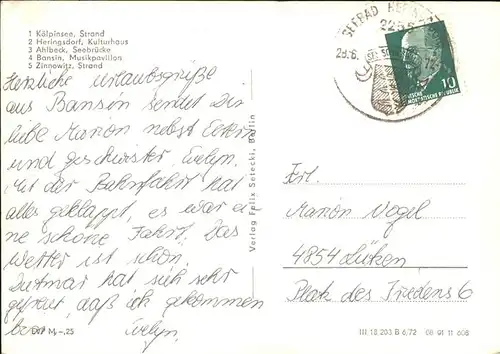 1 Kölpinsee, Strand
2 Heringsdorf, Kulturhaus
3 Ahlbeck, Seebrücke
4 Bansin, Musikpavillon
5 Zinnowitz, Strand
Herzliche Urlaubsgrüße
aus Bansin sendet Dir
liebe Marion nebst Eltern
und Geschwister, Evelyn.
Mit der Bahnfahrt hat
alles geklappt, es war ei
ne schöne Fahrt. Das
Wetter ist schön.
Dietmar hat sich sehr
gefreut, daß ich gekommen
bin. Evelyn.
EVP M -,25
Verlag Felix Setecki, Berlin
SEEBAD
2255
28.6.
10
DEUTSCHE
DEMOKRATISCHE REPUBLIK
Frl.
Marion Vogel
4854 Lützen
Platz des Friedens 6
III 18 203 B 6/72 08 01 11 606